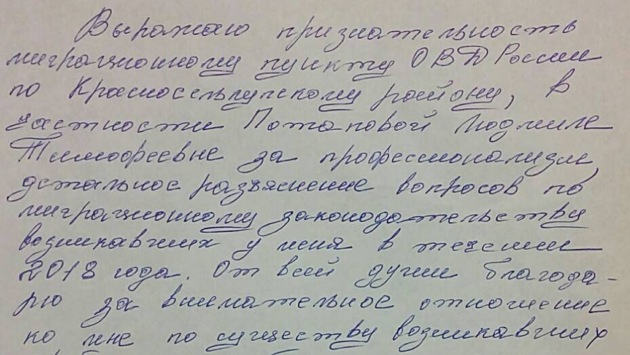 Выражаю признательность
миграционному пункту ОВД России
по Красносельскому району, в
частности Потаповой Людмиле
Тимофеевне за профессионализм,
детальное разъяснение вопросов по
миграционному законодательству
возникавших у меня в течении
2018 года. От всей души благода-
рю за внимательное отношение
ко мне по существу возникавших